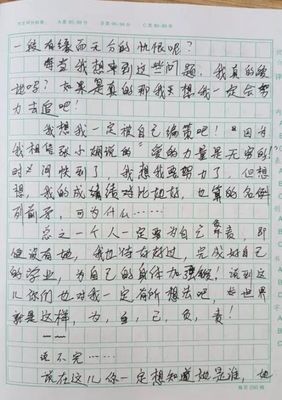 一段有缘而无分的仇恨呢？
每当我想到这些问题，我真的爱
她吗？如果是真的那我天想我一定会努
力去追吧！
我想我一定被自己编策吧！"因为
我相信张小娴说的"爱的力量是无穷的
时间快到了，我想我要努力了，但想
想，我的成绩对比他好，也算的名例
列前茅，可为什么……
总之一个人一定要为自己负责，即
使没有她，我也得好好过，完成好自己
的学业，为自己的身体加强锻！谈到这
儿你们也对我一定有所想法吧，世界
就是这样，为，自，己，负，责！
一一
说不完……
谈在这儿你一定想知道她是谁，她